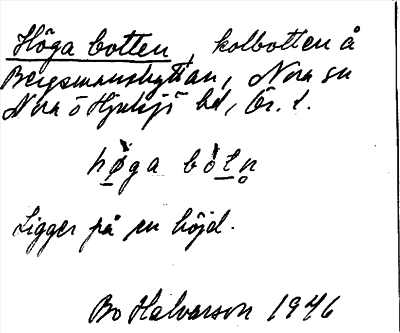 Höga botten, kolbotten å
Bergsmanshyttan, Nora sn
Nora o Hjulsjö bd, Ör. l.
høga bòtn̥
Ligger på en höjd.
Bo Halvarson 1946